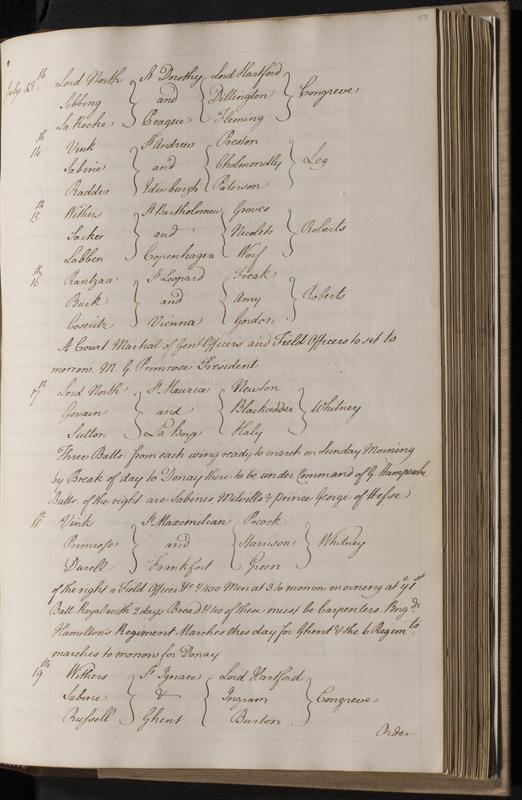 July 13th Lord North } St Dorothy { Lord Hartford }
Sibbing } and { Dillington } Congreve
La Roche } Prague { Fleming }
14th Vink St Andrew Preston
Sabine } and { Cholmondly } Leg
Radder Edenburgh Paterson
15th Withers St Bartholomew Groves
Sacker } and { Nicolets } Roberts
Labben Copenhagen Worf
16th Rantzau St Leopard Freak
Burk } and { Amy } Roberts
Coseritz Vienna Gordon
A Court Martial of Genl Officers and Field Officers to sit to
morrow. M. G Primrose President
17th Lord North St Maurice Newton
Govain } and { Blackadder } Whitney
Sutton La Hoys Haly
Three Batts. from each wing ready to march on Sunday Morning
by Break of day to Donay there to be under Command of G.
Batts. of the right are Sabines Melvills & Prince George of Hesse
18th Vink St Maximilian Pocock
Primrose } and { Harrison } Whitney
Durell Frankfort Green
of the right a Field Officer &c & 400 Men at 3 to morrow morning at ye 1st
Batt. Royal with 2 days Bread & 40 of these must be Carpenters. Brigdr
Hamilton's Regiment Marches this day for Ghent & the 6 Regimts
marches to morrow for Donay
19th Withers St Ignace Lord Hartford
Sabine } & { Ingram } Congreve
Russell Ghent Burton
Order